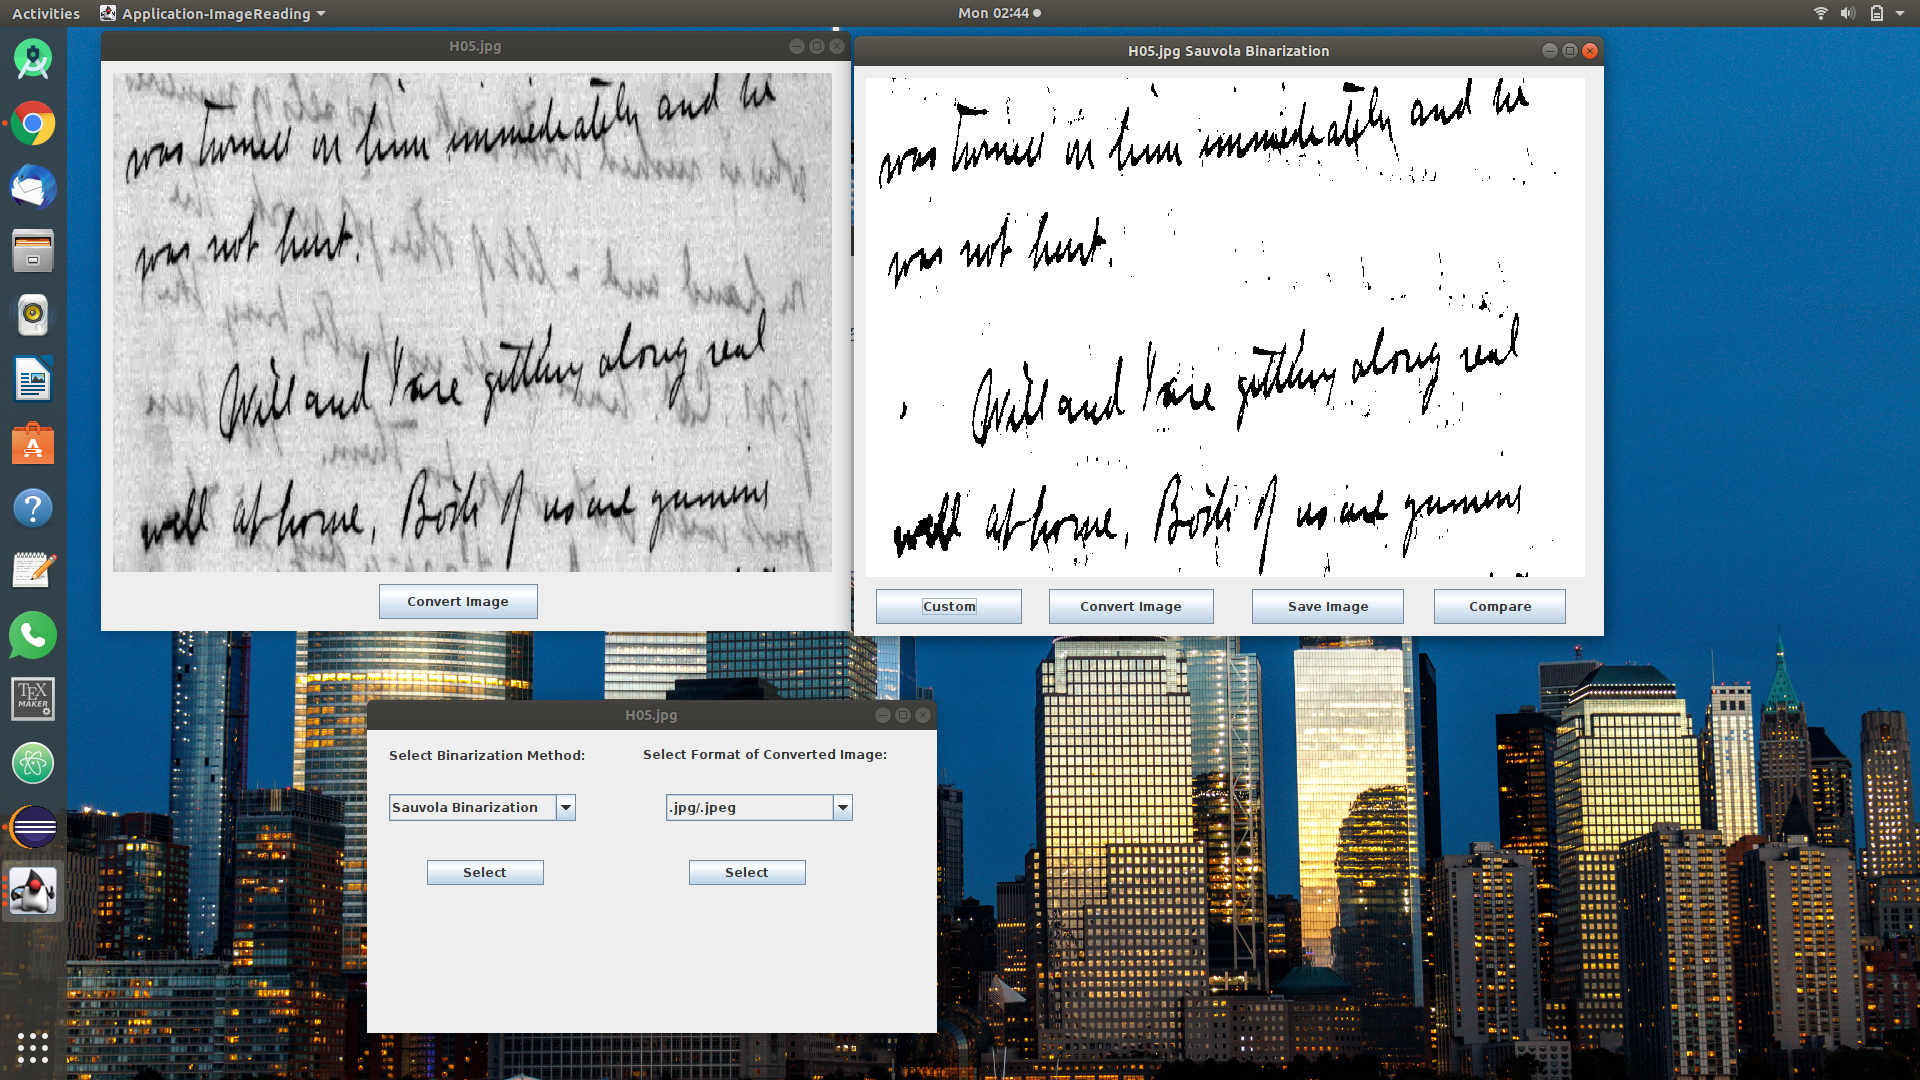 Activities
Application-ImageReading
Mon 02:44
H05.jpg
and he
was turned on him immediately
was not hurt.
Will and I are getting along real
well at home. Both of us are
Convert Image
H05.jpg Sauvola Binarization
and he
was turned on him immediately
was not hurt.
Will and I are getting along real
well at home. Both of us are
Custom
Convert Image
Save Image
Compare
H05.jpg
Select Binarization Method:
Select Format of Converted Image:
Sauvola Binarization
.jpg/.jpeg
Select
Select
TEX
MAKER